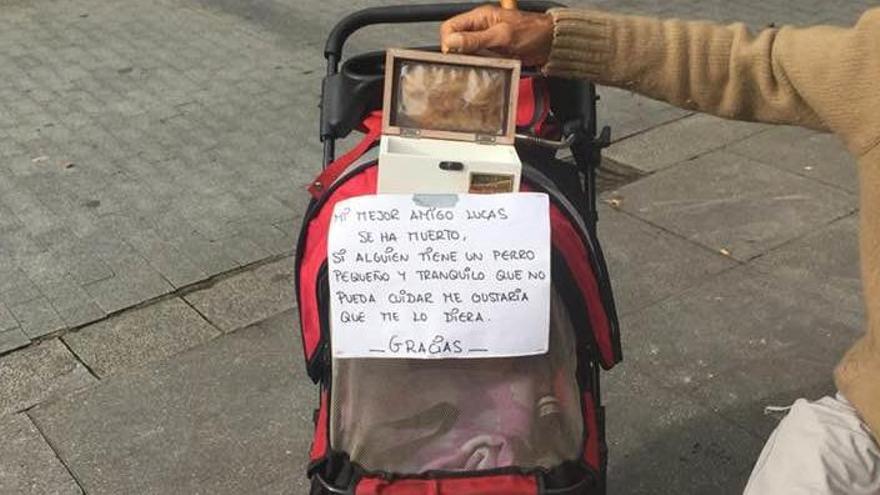 MI MEJOR AMIGO LUCAS
SE HA MUERTO,
SI ALGUIEN TIENE UN PERRO
PEQUEÑO Y TRANQUILO QUE NO
PUEDA CUIDAR ME GUSTARIA
QUE ME LO DIERA.
_ GRACIAS _